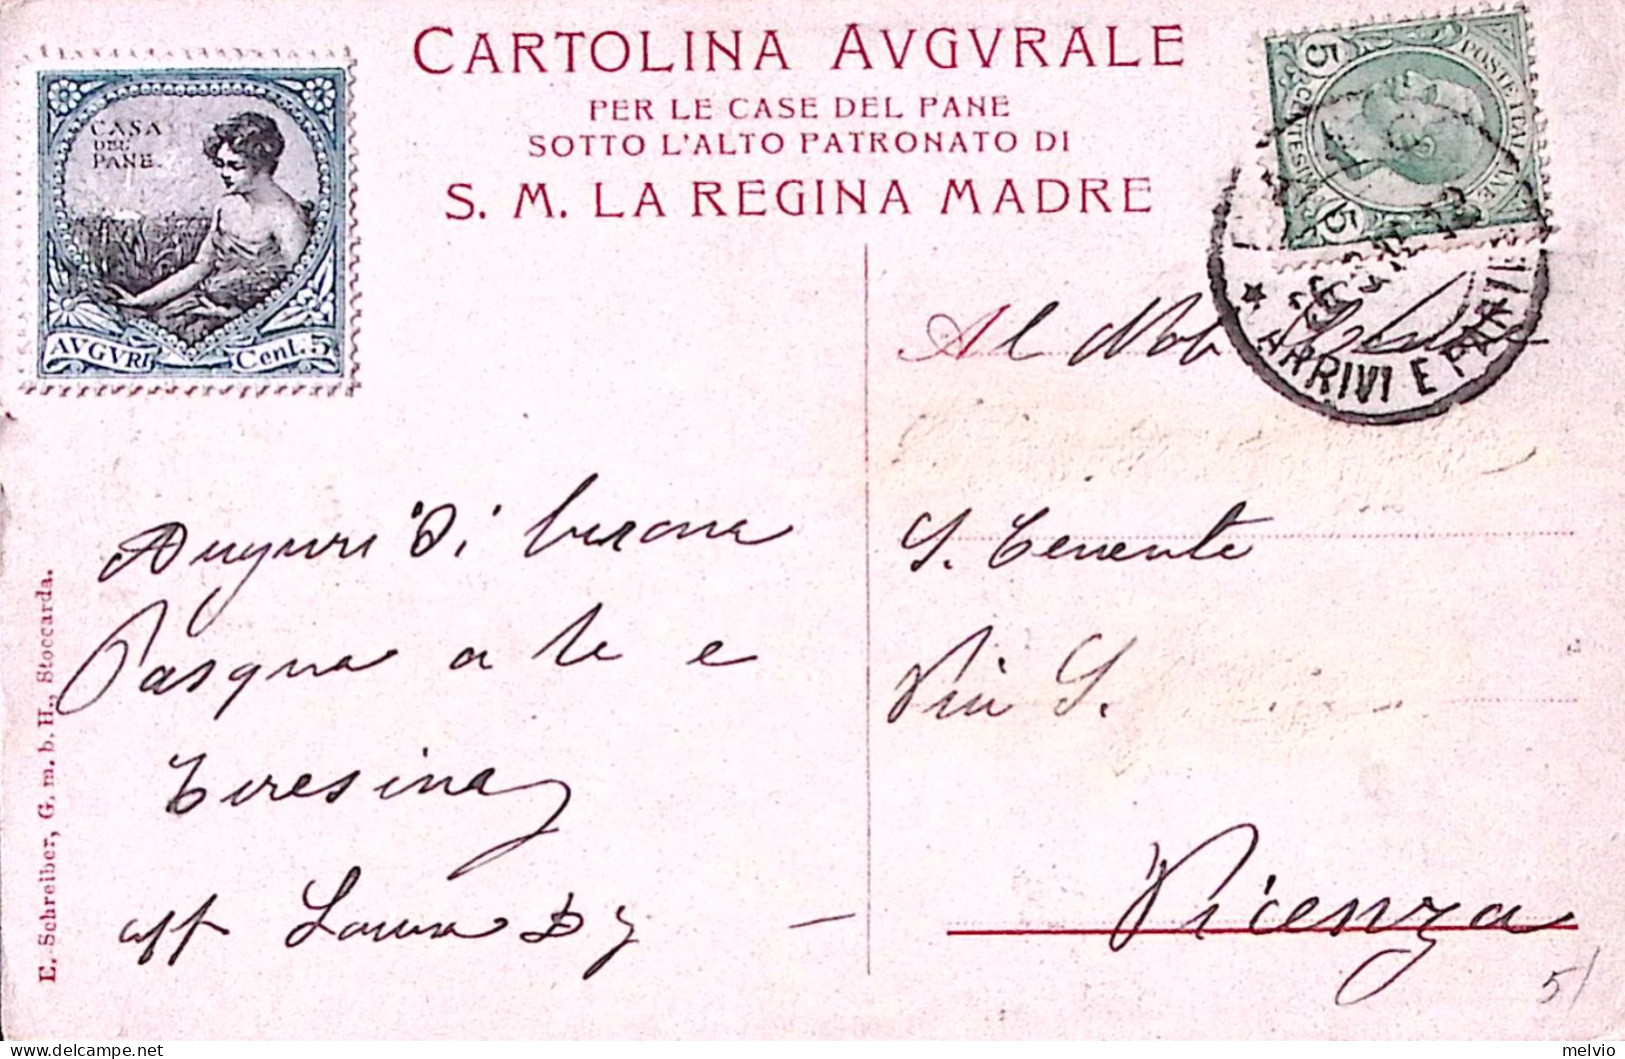 CARTOLINA AVGVRALE
PER LE CASE DEL PANE
SOTTO L'ALTO PATRONATO DI
S. M. LA REGINA MADRE
CASA
DEL
PANE.
AVGVRI Cent. 5
POSTE ITALIANE
5 CENTESIMI 5
ARRIVI E PAR
Al Nob
S. Tenente
Via S.
Vicenza
Auguri di buona
Pasqua a te e
Teresina
aff Laura
E. Schreiber, G. m. b. H., Stoccarda.
5/
melvio